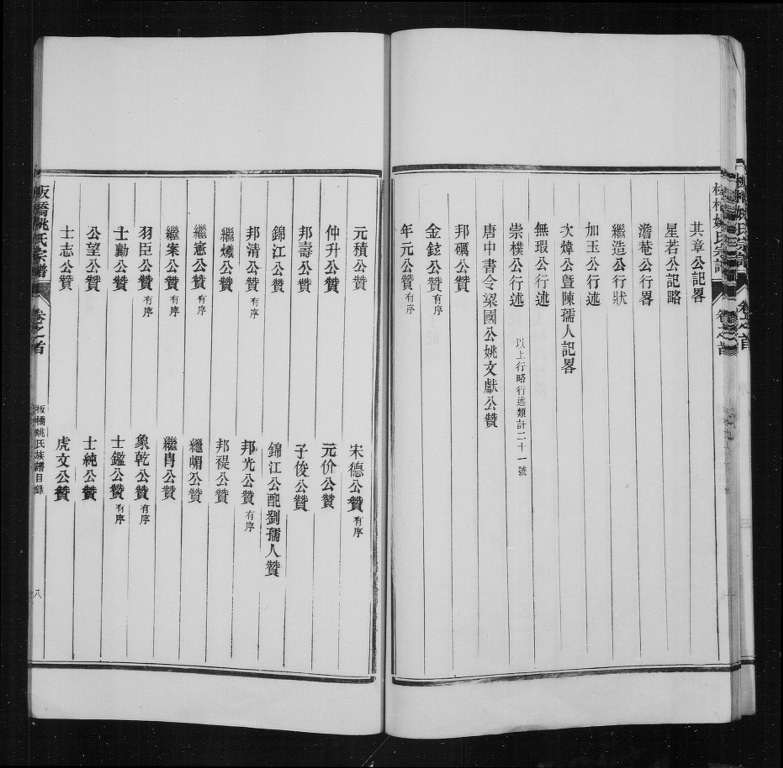 其章公記畧
星若公記略
澹菴公行畧
繼造公行狀
加玉公行述
次煒公曁陳孺人記畧
無瑕公行述
崇樸公行述 以上行略行述類計二十一號
唐中書令梁國公姚文獻公贊
邦礪公贊
金鉉公贊 有序
年元公贊 有序
元積公贊 宋德公贊 有序
仲升公贊 元价公贊
邦壽公贊 子俊公贊
錦江公贊 錦江公配劉孺人贊
邦清公贊 有序 邦光公贊 有序
繼爔公贊 邦禔公贊
繼憲公贊 有序 繼嵋公贊
繼案公贊 有序 繼冉公贊
羽臣公贊 有序 象乾公贊 有序
士勷公贊 士鑑公贊 有序
公望公贊 士純公贊
士志公贊 虎文公贊
板橋姚氏宗譜 卷之首 板橋姚氏族譜目錄 八